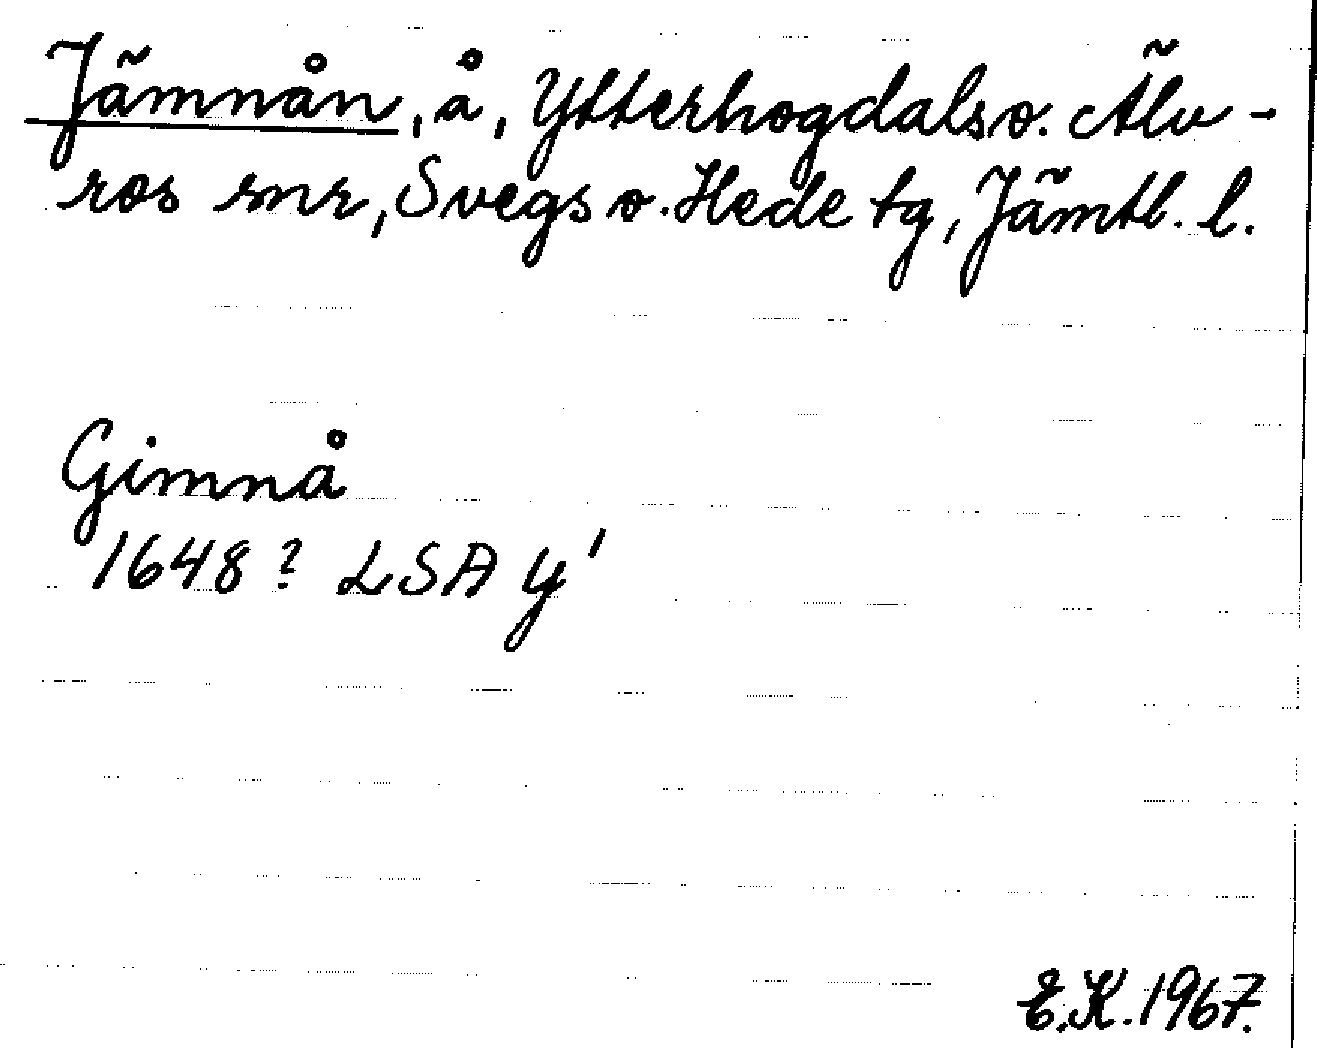 Jämnån, å, Ytterhogdals o. Älv-
ros snr, Svegs o. Hede tg, Jämtl. l.
Gimnå
1648? LSA y'
E.K. 1967.